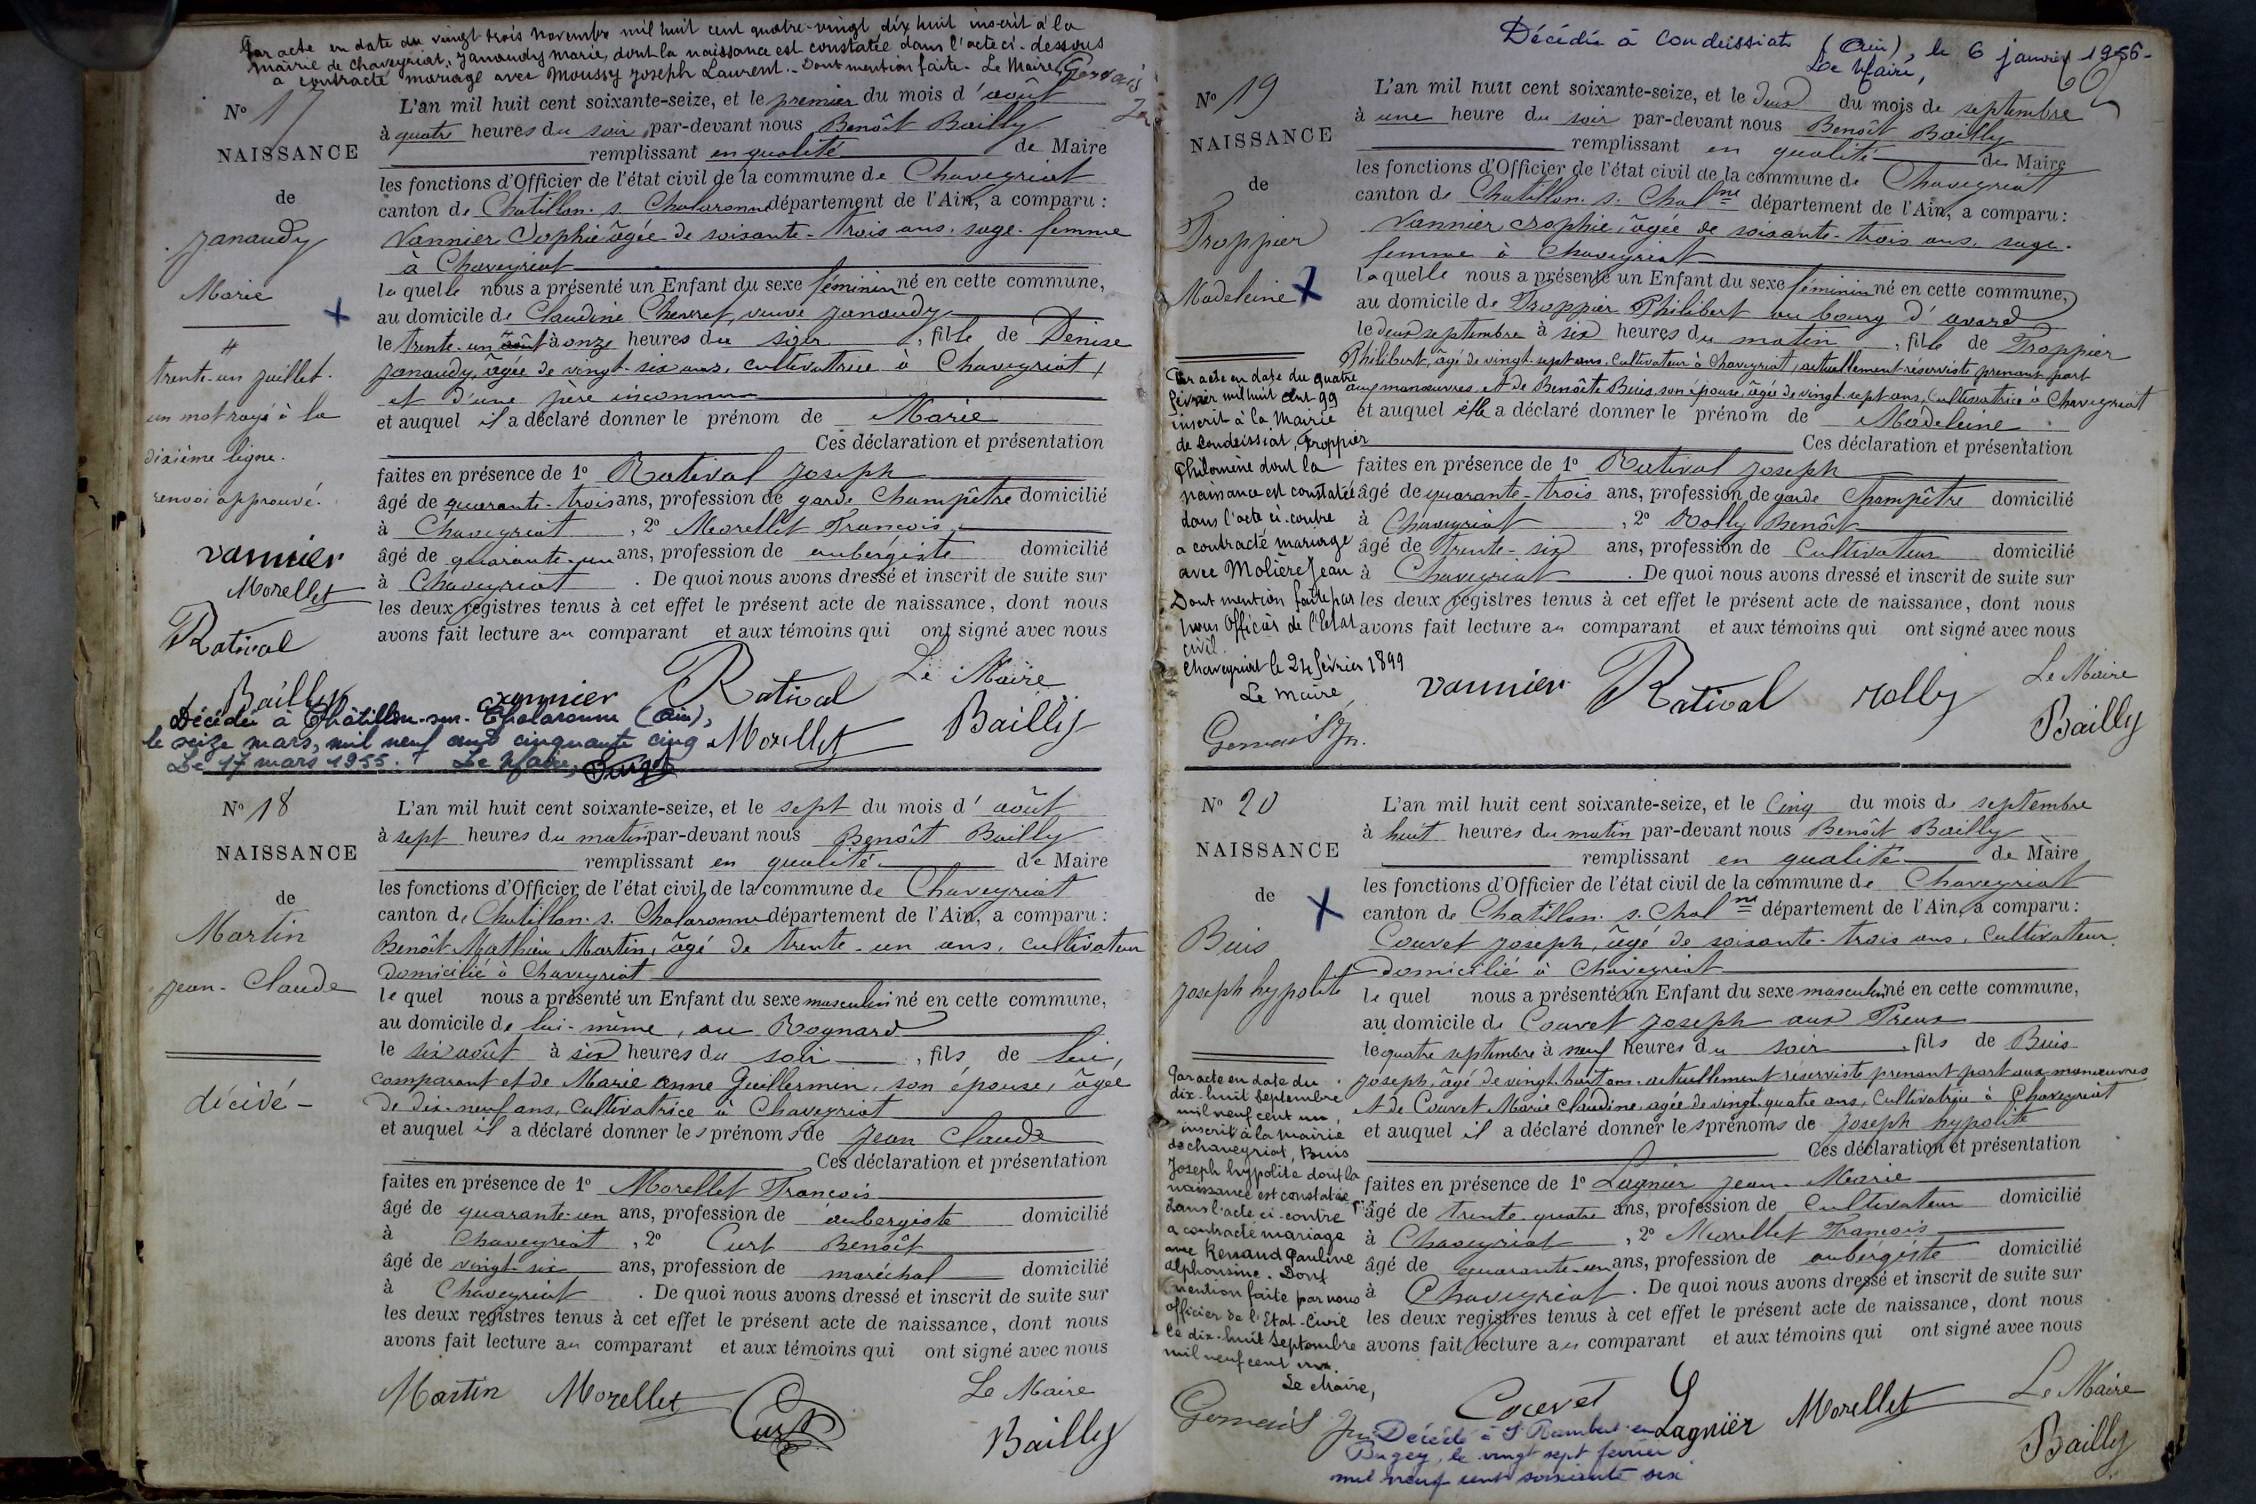 Par acte en date du vingt trois novembre mil huit cent quatre-vingt dix huit inscrit à la
mairie de Chaveyriat, Janaudy Marie, dont la naissance est constatée dans l'acte ci-dessous
a contracté mariage avec Moussy Joseph Laurent.- Dont mention faite - Le Maire, Gervais
Nº 17
NAISSANCE
de
Janaudy
Marie
#
trente-un juillet.
un mot rayé à la
dixième ligne.
renvoi approuvé.
vannier
Morellet
Rativol
Bailly
L'an mil huit cent soixante-seize, et le premier du mois d'août
à quatre heures du soir par-devant nous Benoît Bailly
remplissant en qualité de Maire
les fonctions d'Officier de l'état civil de la commune de Chaveyriat
canton de Chatillon. s. Chalaronne département de l'Ain, a comparu :
Vannier Sophie âgée de soixante-trois ans, sage-femme
à Chaveyriat
la quelle nous a présenté un Enfant du sexe féminin né en cette commune,
au domicile de Claudine Chevret, veuve Janaudy
le trente-un # août à onze heures du soir, fille de Denise
Janaudy, âgée de vingt-six ans, cultivatrice à Chaveyriat,
et d'une père inconnu
et auquel il a déclaré donner le prénom de Marie
Ces déclaration et présentation
faites en présence de 1º Rativol Joseph
âgé de quarante-trois ans, profession de garde Champêtre domicilié
à Chaveyriat, 2º Morellet François
âgé de quarante-un ans, profession de aubergiste domicilié
à Chaveyriat. De quoi nous avons dressé et inscrit de suite sur
les deux registres tenus à cet effet le présent acte de naissance, dont nous
avons fait lecture au comparant et aux témoins qui ont signé avec nous
vannier Rativol Le Maire
Morellet Bailly
Décédée à Châtillon-sur-Chalaronne (Ain),
le seize mars, mil neuf cent cinquante cinq
Le 17 mars 1955. Le Maire,
Nº 18
NAISSANCE
de
Martin
Jean-Claude
décédé -
L'an mil huit cent soixante-seize, et le sept du mois d'août
à sept heures du matin par-devant nous Benoît Bailly
remplissant en qualité de Maire
les fonctions d'Officier de l'état civil de la commune de Chaveyriat
canton de Chatillon. s. Chalaronne département de l'Ain, a comparu :
Benoît Mathieu Martin, âgé de trente-un ans, cultivateur
domicilié à Chaveyriat
le quel nous a présenté un Enfant du sexe masculin né en cette commune,
au domicile de lui-même, au Rognard
le six août à six heures du soir, fils de lui,
comparant et de Marie Anne Guillermin, son épouse, âgée
de dix-neuf ans, Cultivatrice à Chaveyriat
et auquel il a déclaré donner les prénoms de Jean Claude
Ces déclaration et présentation
faites en présence de 1º Morellet François
âgé de quarante-un ans, profession de aubergiste domicilié
à Chaveyriat, 2º Curt Benoît
âgé de vingt-six ans, profession de maréchal domicilié
à Chaveyriat. De quoi nous avons dressé et inscrit de suite sur
les deux registres tenus à cet effet le présent acte de naissance, dont nous
avons fait lecture au comparant et aux témoins qui ont signé avec nous
Martin Morellet Curt Le Maire
Bailly
Décédée à Condeissiat (Ain), le 6 janvier 1956-
Le Maire,
Nº 19
NAISSANCE
de
Troppier
Madeleine
Par acte en date du quatre
février mil huit cent 99
inscrit à la Mairie
de Condeissiat, Troppier
Philomène dont la
naissance est constatée
dans l'acte ci-contre
a contracté mariage
avec Molière Jean
Dont mention faite par
nous Officier de l'Etat
civil.
Chaveyriat le 24 février 1899
Le Maire
Gervais
L'an mil huit cent soixante-seize, et le deux du mois de septembre
à une heure du soir par-devant nous Benoît Bailly
remplissant en qualité de Maire
les fonctions d'Officier de l'état civil de la commune de Chaveyriat
canton de Chatillon. s. Chalne département de l'Ain, a comparu :
Vannier Sophie, âgée de soixante-trois ans, sage-
femme à Chaveyriat
la quelle nous a présenté un Enfant du sexe féminin né en cette commune,
au domicile de Troppier Philibert au bourg d'avard
le deux septembre à six heures du matin, fille de Troppier
Philibert, âgé de vingt-sept ans, Cultivateur à Chaveyriat, actuellement réserviste prenant part
aux manœuvres, et de Benoîte Buis, son épouse, âgée de vingt-sept ans, Cultivatrice à Chaveyriat
et auquel elle a déclaré donner le prénom de Madeleine
Ces déclaration et présentation
faites en présence de 1º Rativol Joseph
âgé de quarante-trois ans, profession de garde Champêtre domicilié
à Chaveyriat, 2º Rolly Benoît
âgé de trente-six ans, profession de Cultivateur domicilié
à Chaveyriat. De quoi nous avons dressé et inscrit de suite sur
les deux registres tenus à cet effet le présent acte de naissance, dont nous
avons fait lecture au comparant et aux témoins qui ont signé avec nous
vannier Rativol rolly Le Maire
Bailly
Nº 20
NAISSANCE
de
Buis
Joseph hypolite
Par acte en date du
dix-huit Septembre
mil neuf cent un
inscrit à la mairie
de chaveyriat, Buis
Joseph hypolite dont la
naissance est constatée
dans l'acte ci-contre
a contracté mariage
avec Renaud Pauline
Alphonsine. Dont
mention faite par nous
officier de l'Etat-Civil
le dix-huit Septembre
mil neuf cent un.
Le Maire,
Gervais
L'an mil huit cent soixante-seize, et le Cinq du mois de septembre
à huit heures du matin par-devant nous Benoît Bailly
remplissant en qualité de Maire
les fonctions d'Officier de l'état civil de la commune de Chaveyriat
canton de Chatillon. s. Chalne département de l'Ain, a comparu :
Couvet Joseph, âgé de soixante-trois ans, Cultivateur
domicilié à Chaveyriat
le quel nous a présenté un Enfant du sexe masculin né en cette commune,
au domicile de Couvet Joseph aux Preux
le quatre septembre à neuf heures du soir, fils de Buis
Joseph, âgé de vingt-huit ans, actuellement réserviste prenant part aux manœuvres
et de Couvet Marie Claudine, agée de vingt-quatre ans, Cultivatrice à Chaveyriat
et auquel il a déclaré donner les prénoms de Joseph hypolite
Ces déclaration et présentation
faites en présence de 1º Lagnier Jean-Marie
âgé de trente-quatre ans, profession de Cultivateur domicilié
à Chaveyriat, 2º Morellet François
âgé de quarante-un ans, profession de aubergiste domicilié
à Chaveyriat. De quoi nous avons dressé et inscrit de suite sur
les deux registres tenus à cet effet le présent acte de naissance, dont nous
avons fait lecture au comparant et aux témoins qui ont signé avec nous
Couvet Lagnier Morellet Le Maire
Bailly
Décédé à St Rambert en
Bugey, le vingt sept février
mil neuf cent soixante six